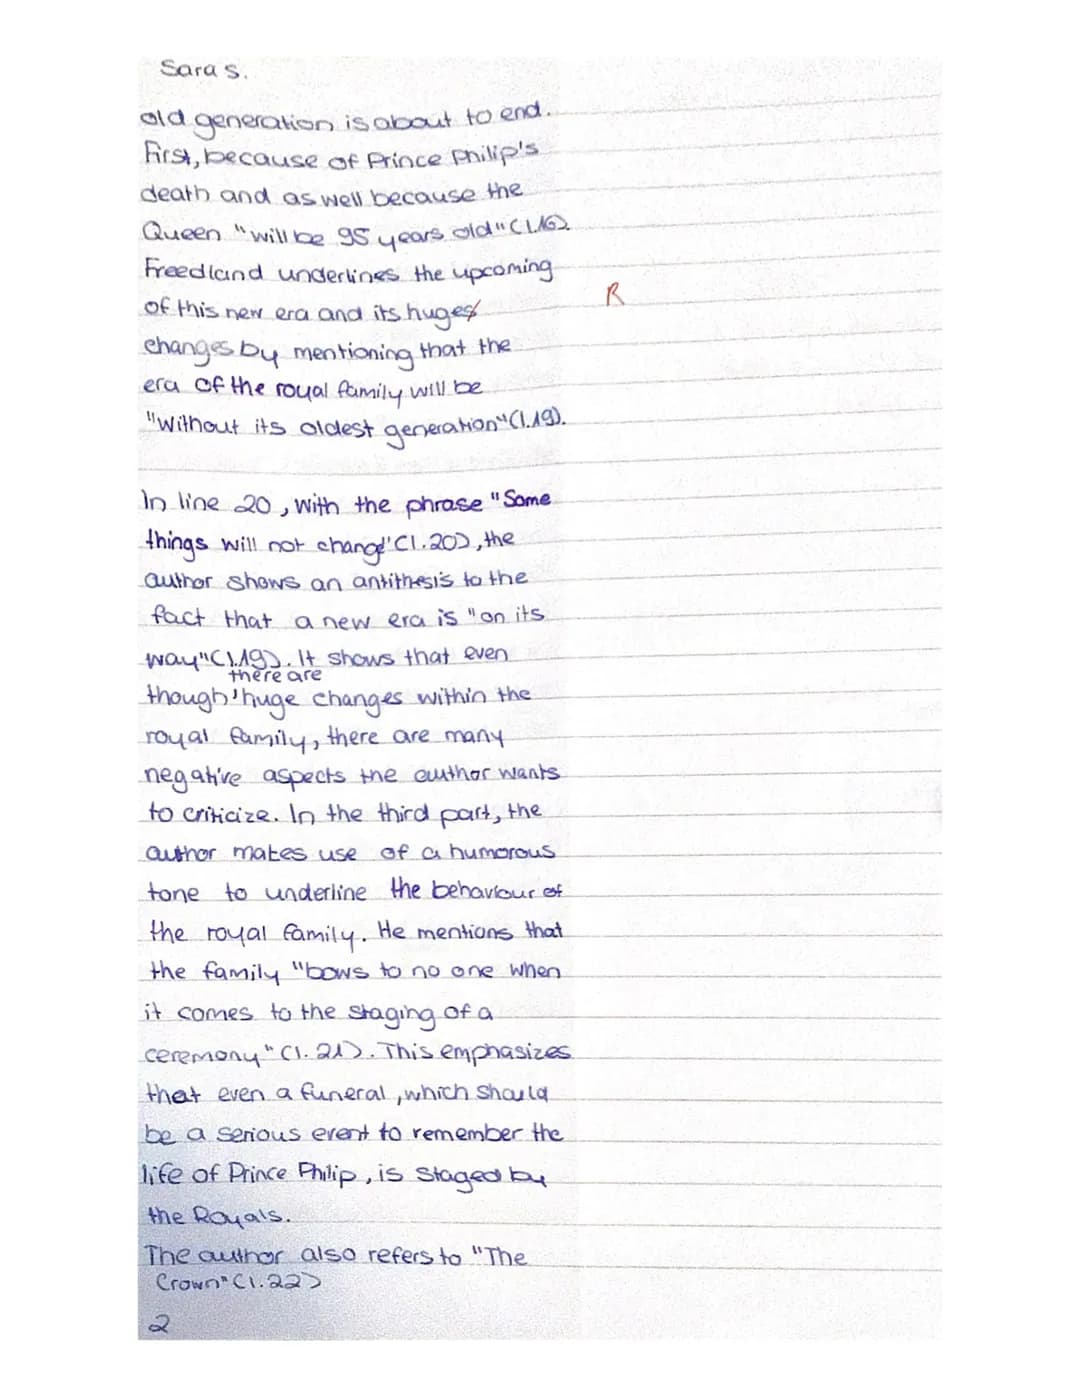 Sara s.
old generation is about to end.
First, because of Prince Philip's
death and as well because the
Queen "will be 95 years old" (l.16).
Freedland underlines the upcoming
R
of this new era and its huges
changes by mentioning that the
era of the royal family will be
"without its oldest generation" (l.19).
In line 20, with the phrase "Some
things will not change' (l.20), the
author shows an antithesis to the
fact that a new era is "on its
way" (l.19). It shows that even
there are
though huge changes within the
royal family, there are many
negative aspects the author wants
to criticize. In the third part, the
author makes use of a humorous
tone to underline the behaviour of
the royal family. He mentions that
the family "bows to no one when
it comes to the staging of a
ceremony" (l.21). This emphasizes
that even a funeral, which should
be a serious event to remember the
life of Prince Philip, is staged by
the Royals.
The author also refers to "The
Crown" (l.22)
2